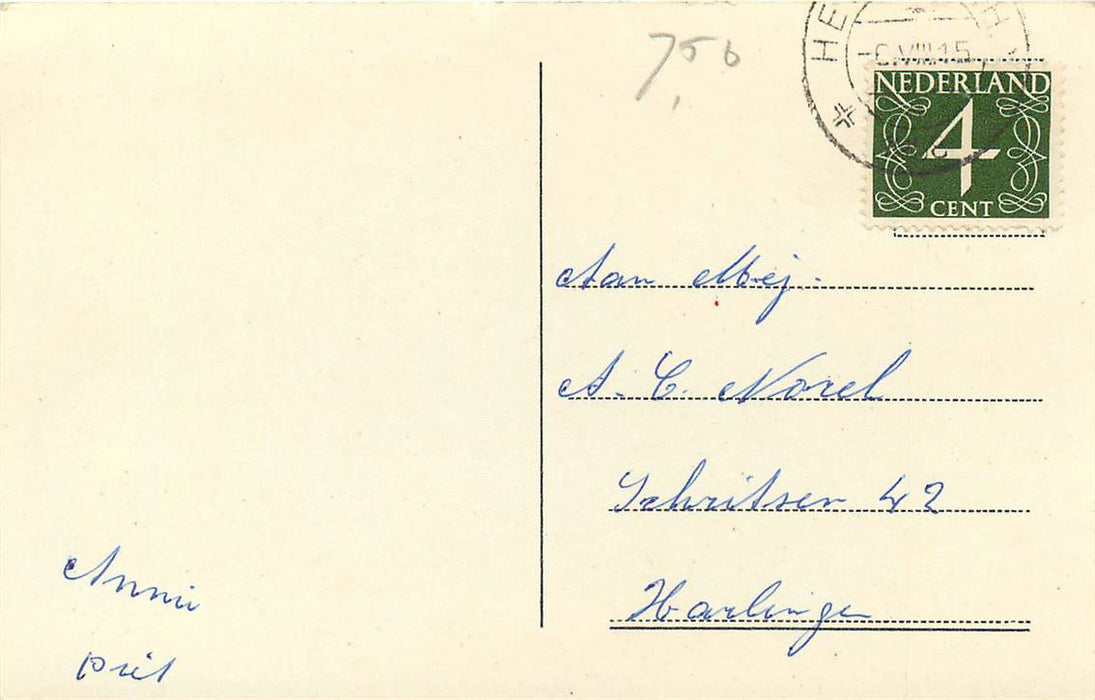 7,50
NEDERLAND
4
CENT
Aan Mej.
A. C. Norel
Schritsen 42
Harlingen
Annie
Piet